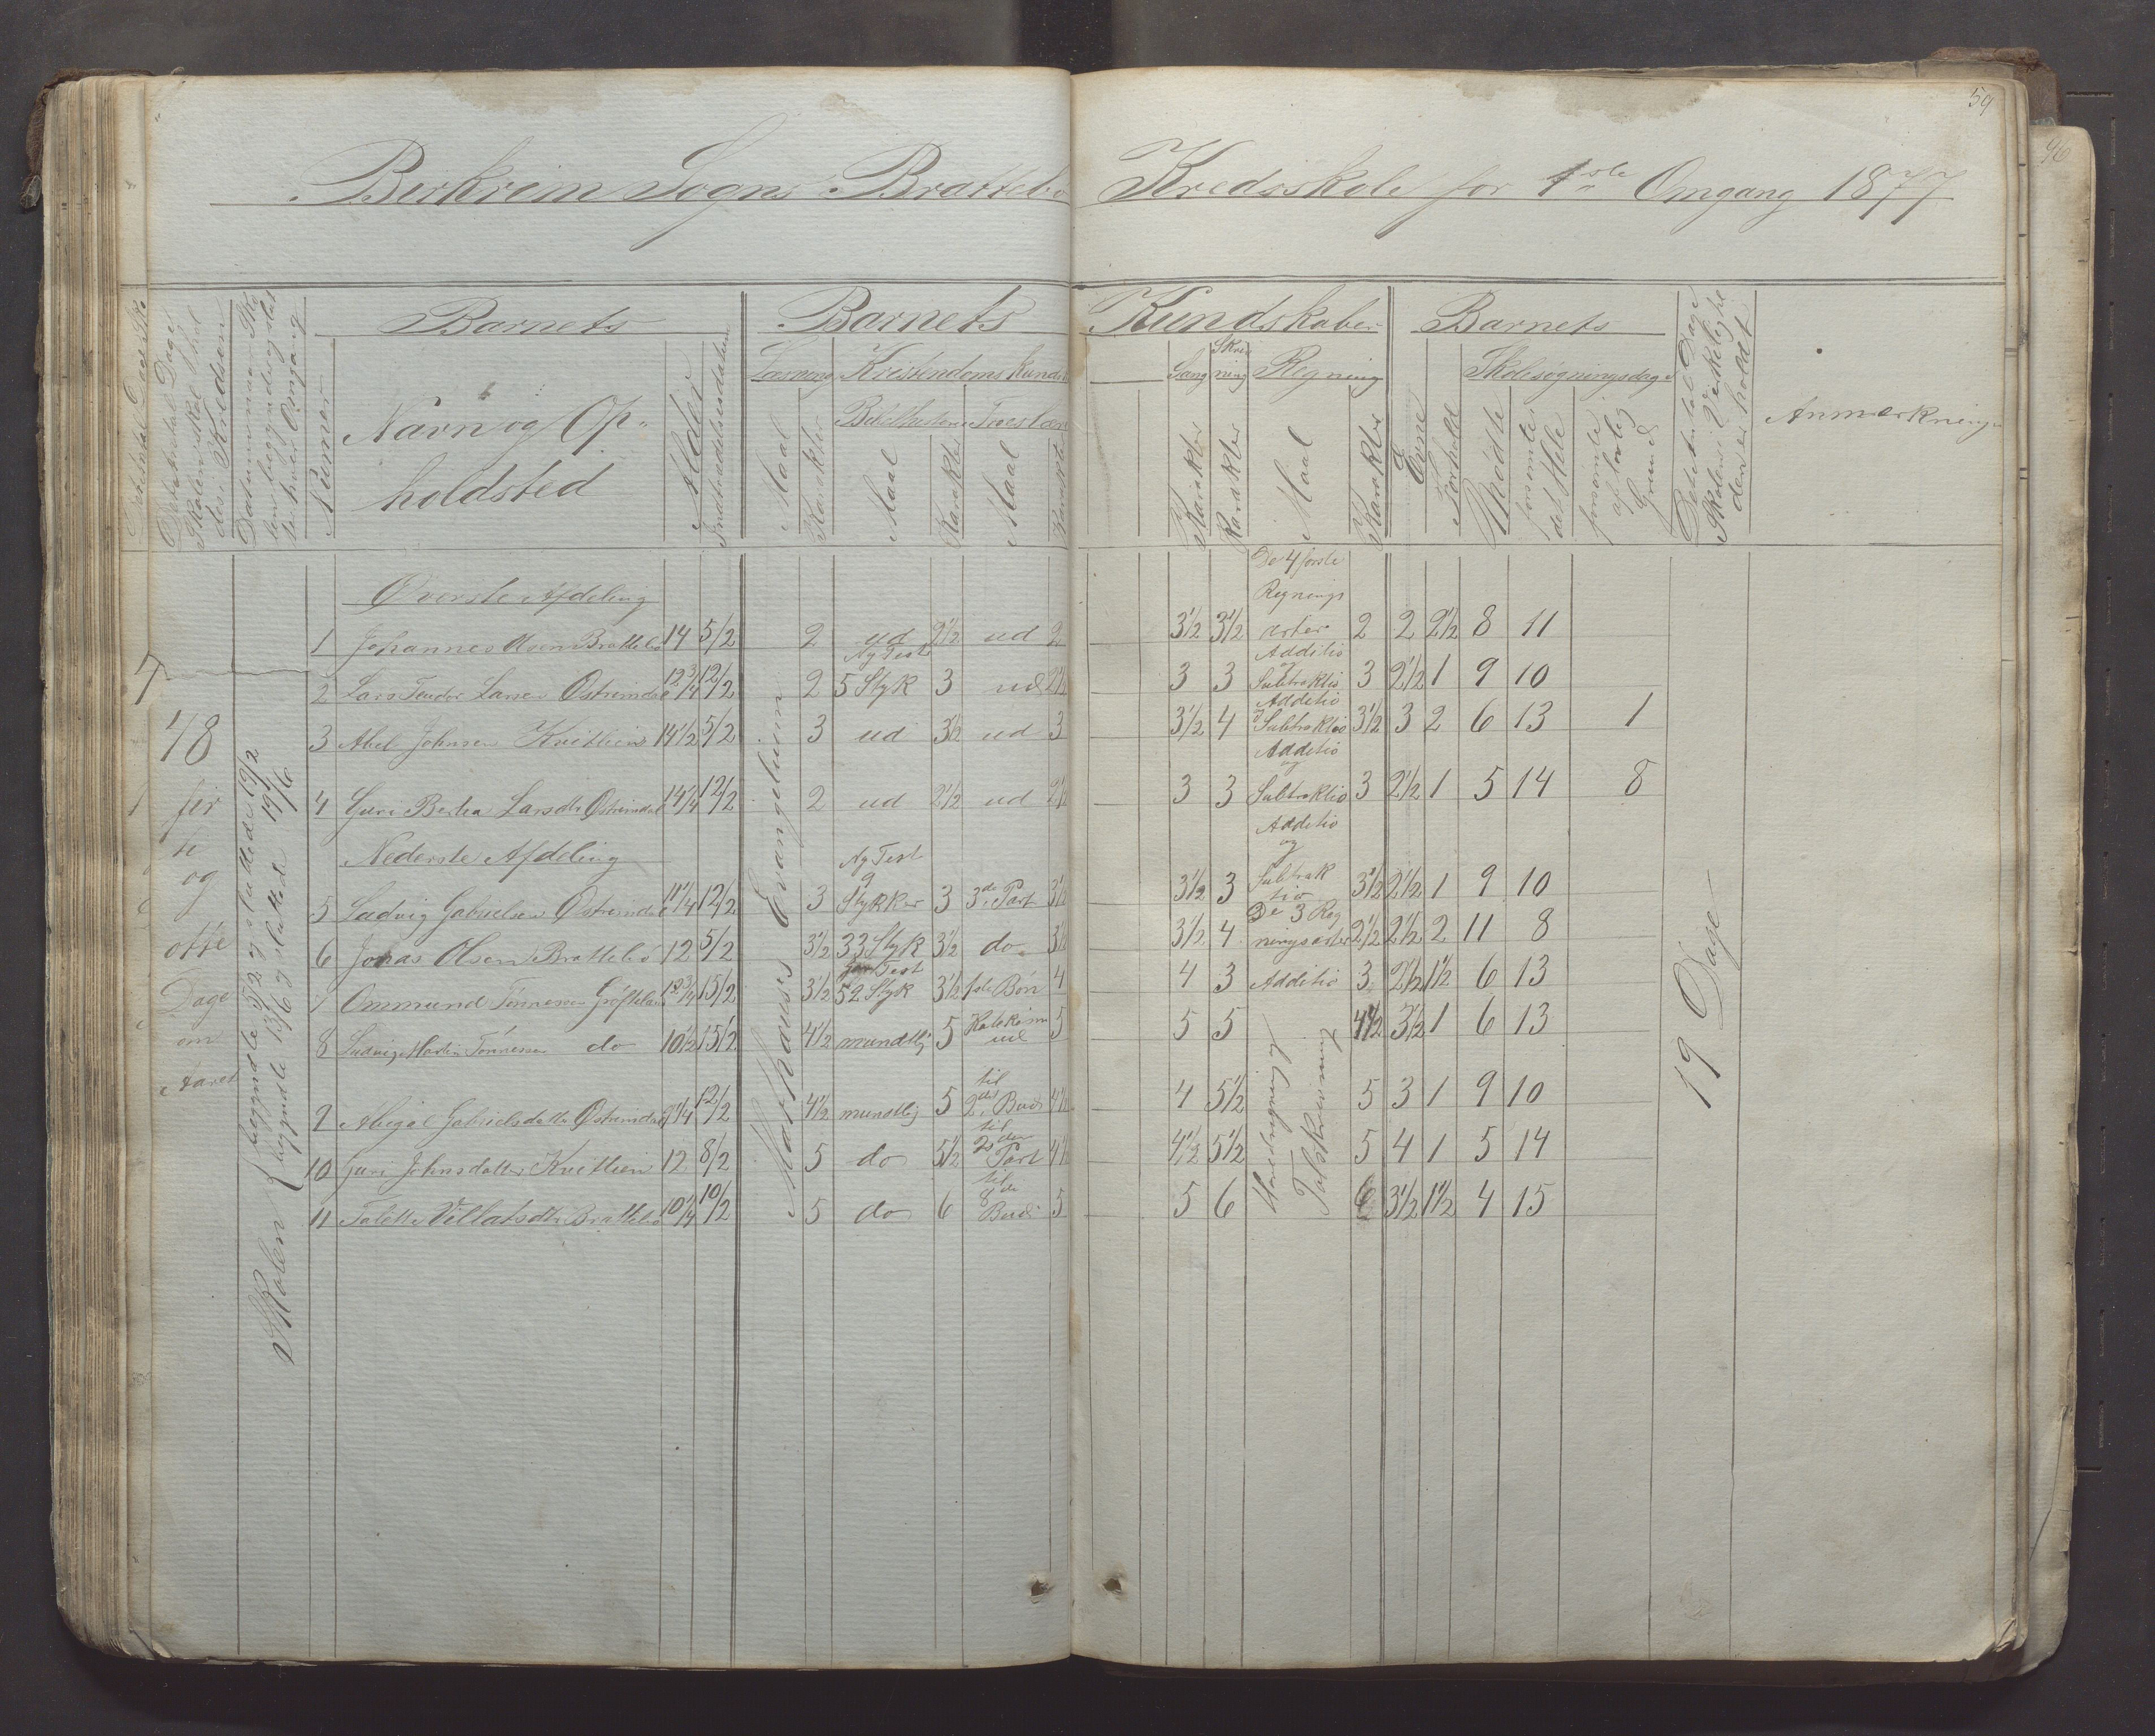 59
96
Birkrem Sogns Brattebø Kredsskole for 1ste Omgang 1877
Barnets
Barnets Kundskaber
Barnets
Numer
Navn og Op-
holdsted
Alder
Indtrædelsesdatum
Læsning
Kristendoms Kundsk
Sang
Skriv
ning
Regning
Skolesøgningsdage
Maal
Karakter
Bibelhistorie
Maal
Karakter
Maal
Karakter
Karakter
Maal
Karakter
Evne
Forhold
Mødte
forsømte
det Hele
forsømte
af lovlig
Grund
Det Antal Dage
Skolen i Virkelighe
den er holdt
Anmærkninger
7
48
fir
ti
og
otte
Dage
om
Aaret
Skolen { begyndte 5/2 og sluttede 19/2
begyndte 13/6 og sluttede 19/6
Mathæus Evangelium
Øverste Afdeling
De 4 første
Regnings
1 Johannes Olsen Brattebø 14 5/2 2 ud 2½ ud 2 3½ 3½ arter 2 2 2½ 8 11
Ny Test
Additio
og
2 Lars Teodor Larsen Østremdal 12¾ 12/2 2 5 Styk 3 ud 2½ 3 3 Subtraktio 3 2½ 1 9 10
Additio
3 Abel Johnsen Kvitlein 14½ 5/2 3 ud 3½ ud 3 3½ 4 Subtraktio 3½ 3 2 6 13 1
Additio
og
4 Guri Bertea Larsdtr Østremdal 14¼ 12/2 2 ud 2½ ud 2½ 3 3 Subtraktio 3 2½ 1 5 14 8
Nederste Afdeling
Ny Test
9
Additio
og
5 Ludvig Gabrielsen Østremdal 11¼ 12/2 3 Stykker 3 3de Part 3½ 3½ 3 Subtrak
tio 3½ 2½ 1 9 10
De 3 Reg
6 Jonas Olsen Brattebø 12 5/2 3½ 33 Styk 3½ do 3½ 3½ 4 ningsarter 2½ 2½ 2 11 8
Test
7 Ommund Tønnessen 12¾ 15/2 3½ 52 Styk 3½ Bøn 4 4 3 Additio 3 2½ 1½ 6 13
8 Ludvig Martin Tønnessen do 10½ 15/2 4½ mundtlig 5 ud 5 5 5 4½ 3½ 1 6 13
til
9 Abigal Gabrielsdatter Østremdal 9¼ 12/2 4½ mundtlig 5 2det Bud 4½ 4 5½ 5 3 1 9 10
til
10 Guri Johnsdatter Kvitlein 12 8/2 5 do 5½ 2den Part 4½ 4½ 5½ 5 4 1 5 14
til
8de
11 Brattebø 10¼ 10/2 5 do 6 Bud 5 5 6 6 3½ 1½ 4 15
Hovedregning og
Talskrivning
19 Dage